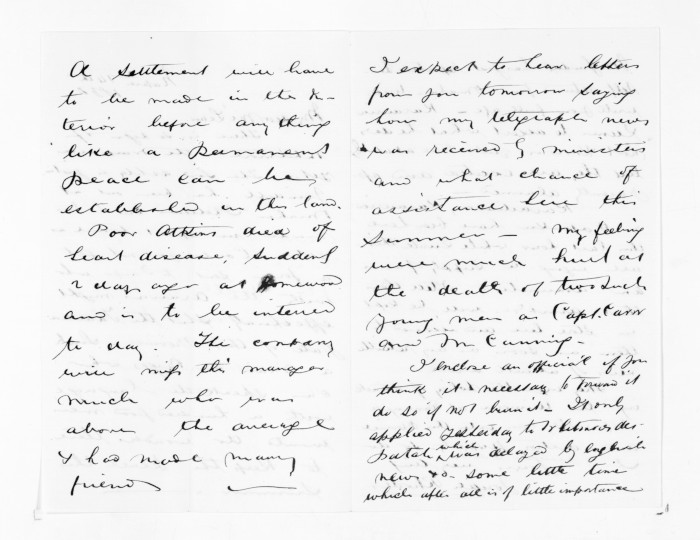 A settlement will have
to be made in the In-
terior before anything
like a permanent
peace can be
established in this land.
Poor Atkins died of
heart disease, suddenly
2 days ago at
and is to be interred
to day. The company
will miss this manager
much who was
above the average
& had made many
friends
I expect to hear letters
from you tomorrow saying
how my telegraph news
was received by ministers
and what chance of
assistance here this
Summer — My feelings
were much hurt at
the death of two such
young men as Capt. Carr
and Mr Cunning.
I enclose an official if you
think it necessary to forward it
do so if not burn it — It only
applied yesterday to des-
patch which was delayed by english
news & some little time
which after all is of little importance